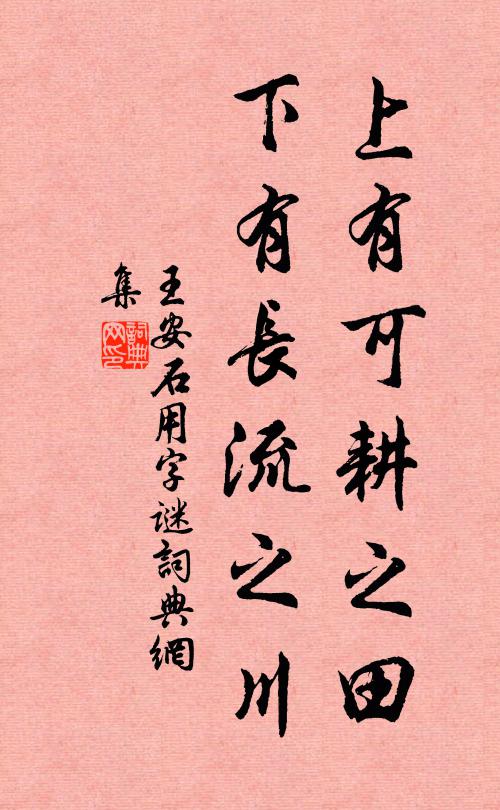 上有可耕之田
下有長流之川
王安石用字谜詞典網
集
詞典网印